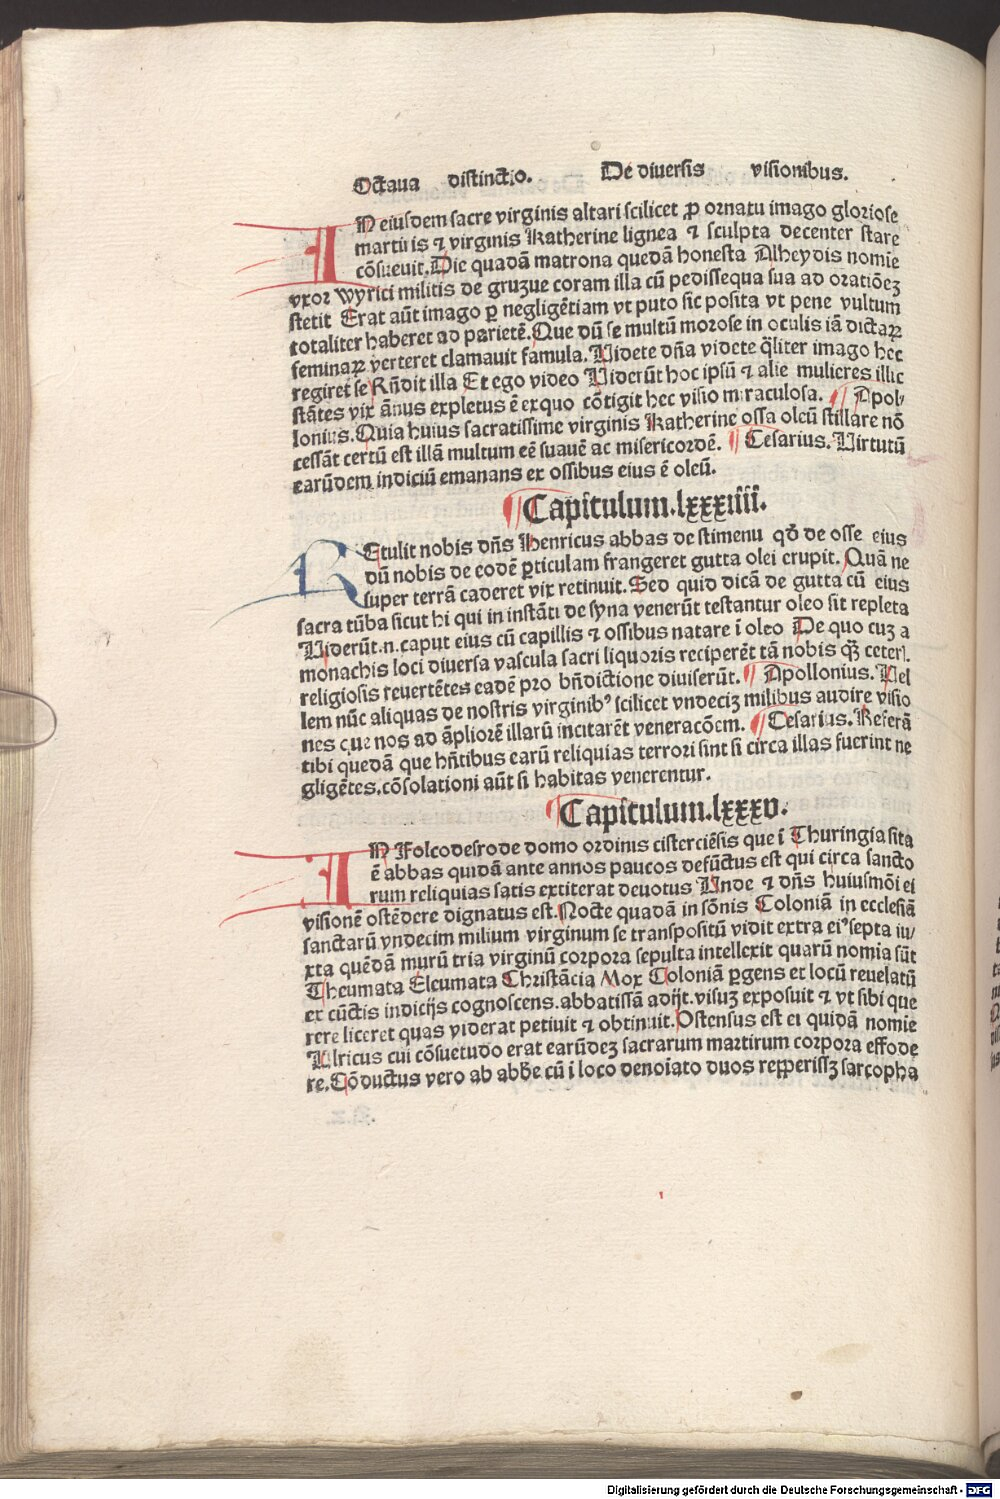 Octaua distinctio. De diuersis visionibus.
IN eiusdem sacre virginis altari scilicet ꝓ ornatu imago gloriose
martiris ⁊ virginis Katherine lignea ⁊ sculpta decenter stare
cōsueuit. Die quadā matrona quedam honesta Alheydis nomīe
vxor Wyrici militis de gruzue coram illa cū pedissequa sua ad oratiōeꝫ
stetit Erat aūt imago ꝑ negligētiam vt puto sic posita vt pene vultum
totaliter haberet ad parietē. Que dū se multū morose in oculis iā dictaꝝ
feminaꝝ verteret clamauit famula. Videte dn̄a videte q̄liter imago hec
regiret se Rn̄dit illa Et ego video Viderūt hoc ipsū ⁊ alie mulieres illic
stātes vix ānus expletus ē exquo cōtigit hec visio miraculosa. ¶ Apol-
lonius. Quia huius sacratissime virginis Katherine ossa oleū stillare nō
cessāt certū est illā multum eē suauē ac misericordē. ¶ Cesarius. Virtutū
earūdem indiciū emanans ex ossibus eius ē oleū.
¶ Capitulum. lxxxiiii.
REtulit nobis dn̄s Henricus abbas de stimenu qđ de osse eius
dū nobis de eodē ꝑticulam frangeret gutta olei erupit. Quā ne
super terrā caderet vix retinuit. Sed quid dicā de gutta cū eius
sacra tūba sicut hi qui in instāti de syna venerūt testantur oleo sit repleta
Viderūt .n. caput eius cū capillis ⁊ ossibus natare ī oleo De quo cuꝫ a
monachis loci diuersa vascula sacri liquoris reciperēt tā nobis qꝫ̄ ceterł.
religiosis reuertētes eadē pro bn̄dictione diuiserūt. ¶ Apollonius. Vel
lem nūc aliquas de nostris virginibꝰ scilicet vndeciꝫ milibus audire visio
nes que nos ad āpliorē illarū incitarēt veneracōem. ¶ Cesarius. Referā
tibi quedā que hn̄tibus earū reliquias terrori sint si circa illas fuerint ne
gligētes. cōsolationi aūt si habitas venerentur.
¶ Capitulum. lxxxv.
IN Folcodesrode domo ordinis cisterciēsis que ī Thuringia sita
ē abbas quidā ante annos paucos defūctus est qui circa sancto
rum reliquias satis extiterat deuotus Vnde ⁊ dn̄s huiusmōi ei
visionē ostēdere dignatus est. Nocte quadā in sōnis Coloniā in ecclesiā
sanctarū vndecim milium virginum se transpositū vidit extra eiꝰ septa iu/
xta quēdā murū tria virginū corpora sepulta intellexit quarū nomīa sūt
Theumata Elcumata Christācia Mox Coloniā ꝑgens et locū reuelatū
ex cūctis indicijs cognoscens. abbatissā adijt. visuꝫ exposuit ⁊ vt sibi que
rere liceret quas viderat petiuit ⁊ obtinuit. Ostensus est ei quidā nomīe
Vlricus cui cōsuetudo erat earūdeꝫ sacrarum martirum corpora effode
re. Cōductus vero ab abb̄e cū ī loco denoīato duos reꝑperissꝫ sarcopha